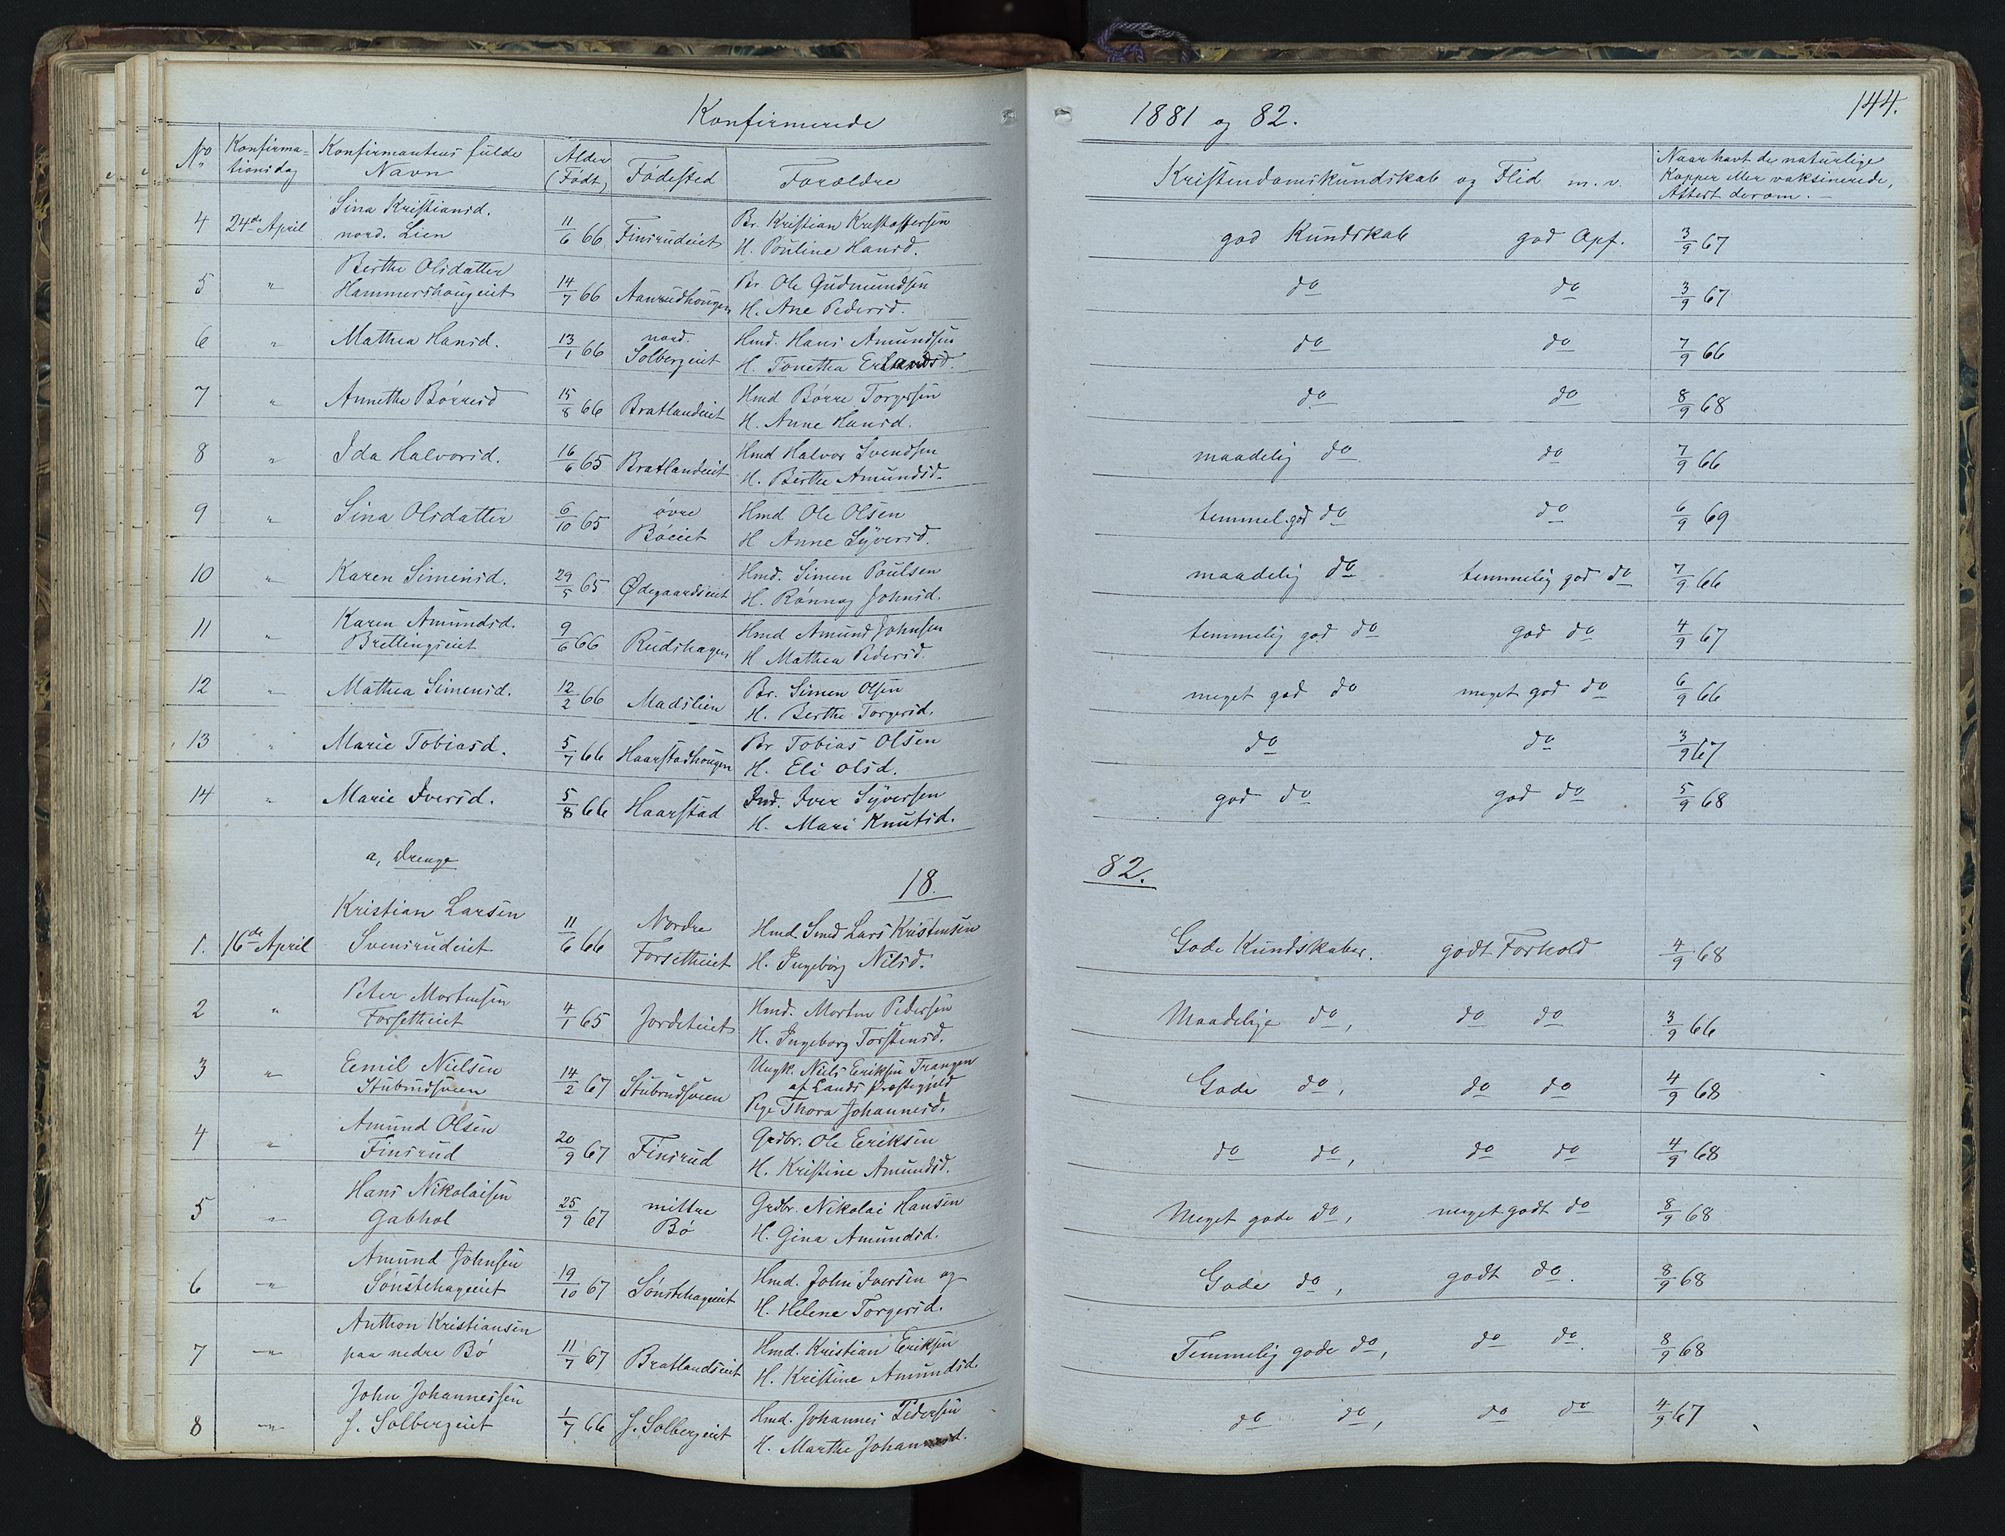 Konfirmerede 1881 og 82. 144.
No Konfirma- Konfirmantens fulde Alder Fødested Forældre Kristendomskundskab og Flid m. v. Naar havt de naturlige
tionsdag Navn (Født) Kopper eller vaksinerede,
Attest derom.
4 24de April Sina Kristiansd. 11/6 66 Finsrudeiet Br. Kristian Kristoffersen god Kundskab god Opf. 3/9 67
nord. Lien H. Pouline Hansd.
5 " Berthe Olsdatter 14/7 66 Aanrudhougen Br. Ole Gudmundsen do do 3/9 67
Hammershougeiet H. Ane Pedersd.
6 " Mathea Hansd. 13/1 66 nord. Hmd. Hans Amundsen do do 7/9 66
Solbergeiet H. Tonetha Erlandsd.
7 " Annethe Børresd 15/8 66 Bratlandeiet Hmd Børre Torgersen do do 8/9 68
H. Anne Hansd.
8 " Ida Halvorsd. 16/6 65 Bratlandeiet Hmd Halvor Svendsen maadelig do do 7/9 66
H. Berthe Amundsd.
9 " Sina Olsdatter 6/10 65 øvre Hmd Ole Olsen temmel. god do do 6/9 69
Bøeiet H Anne Syversd.
10 " Karen Simensd. 29/5 65 Ødegaardseiet Hmd. Simen Poulsen maadelig do temmelig god do 7/9 66
H. Rønnog Johnsd.
11 " Karen Amundsd. 9/6 66 Rudshagen Hmd Amund Johnsen temmelig god do god do 4/9 67
Brettingseiet H Mathea Pedersd.
12 " Mathea Simensd. 12/2 66 Madslien Br. Simen Olsen meget god do meget god do 6/9 66
H. Berthe Torgersd.
13 " Marie Tobiasd. 5/7 66 Haarstadhougen Br Tobias Olsen do do 3/9 67
H. Eli Olsd.
14 " Marie Iversd. 5/8 66 Haarstad Ind. Iver Syversen god do god do 5/9 68
H. Mari Knutsd.
a, Drenge
18 82.
1. 16de April Kristian Larsen 11/6 66 Nordre Hmd. Smed Lars Kristensen Gode Kundskaber. godt Forhold 4/9 68
Svensrudeiet Forsetheiet H. Ingeborg Nilsd.
2 " Peter Mortensen 4/1 65 Jordeteiet Hmd. Morten Pedersen Maadelige do, do do 3/9 66
Forsetheiet H. Ingeborg Torstensd.
3 " Eemil Nielsen 14/2 67 Stubrudsveen Ungk. Niels Eriksen Trangen Gode do, do do 4/9 68
Stubrudsveen af Lands Præstegjeld
Pige Thora Johannesd.
4 " Amund Olsen 20/9 67 Finsrud Grdbr. Ole Eriksen do do, do do 4/9 68
Finsrud H. Kristine Amundsd.
5 " Hans Nikolaisen 25/9 67 mittre Grdbr. Nikolai Hansen Meget gode do, meget godt do 8/9 68
Gabhol Bø H. Gina Amundsd.
6 " Amund Johnsen 19/10 67 Sønstehageeiet Hmd. John Iversen og Gode do, godt do. 8/9 68
Sønstehageeiet H. Helene Torgersd.
7 " Anthon Kristiansen 11/7 67 Bratlandseiet Hmd. Kristian Eriksen Temmelig gode do, do do. 8/9 68
paa nedre Bø H. Kristine Amundsd.
8 " John Johannessen 1/7 66 S. Solbergeiet Hmd. Johannes Pedersen do do, do do 4/9 67
S. Solbergeiet H. Marthe Johannesd.